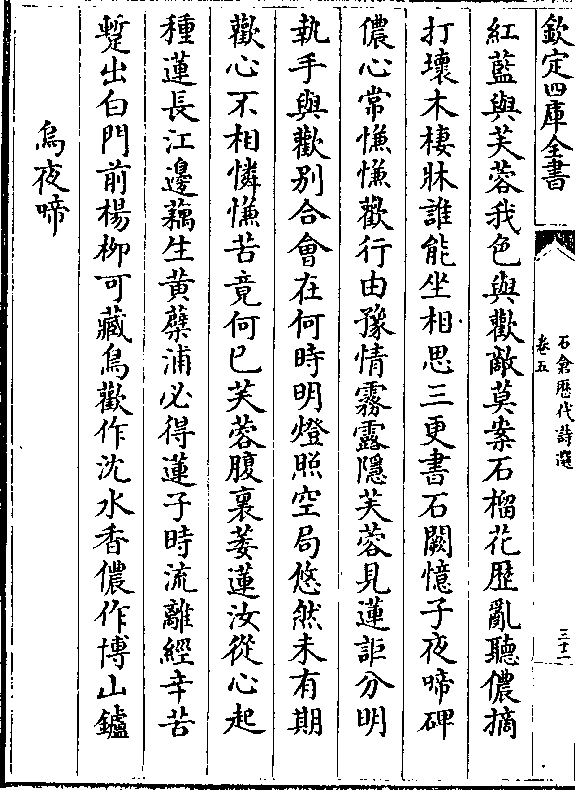 欽定四庫全書
石倉歴代詩選
卷五
三十二
紅藍與芙蓉我色與歡敵莫案石榴花歴亂聽儂摘
打壞木棲牀誰能坐相思三更書石闕憶子夜啼碑
儂心常慊慊歡行由豫情霧露隱芙蓉見蓮詎分明
執手與歡别合會在何時明燈照空局悠然未有期
歡心不相憐慊苦竟何已芙蓉腹裏萎蓮汝從心起
種蓮長江邊藕生黄蘗浦必得蓮子時流離經辛苦
蹔出白門前楊柳可藏烏歡作沈水香儂作博山鑪
烏夜啼